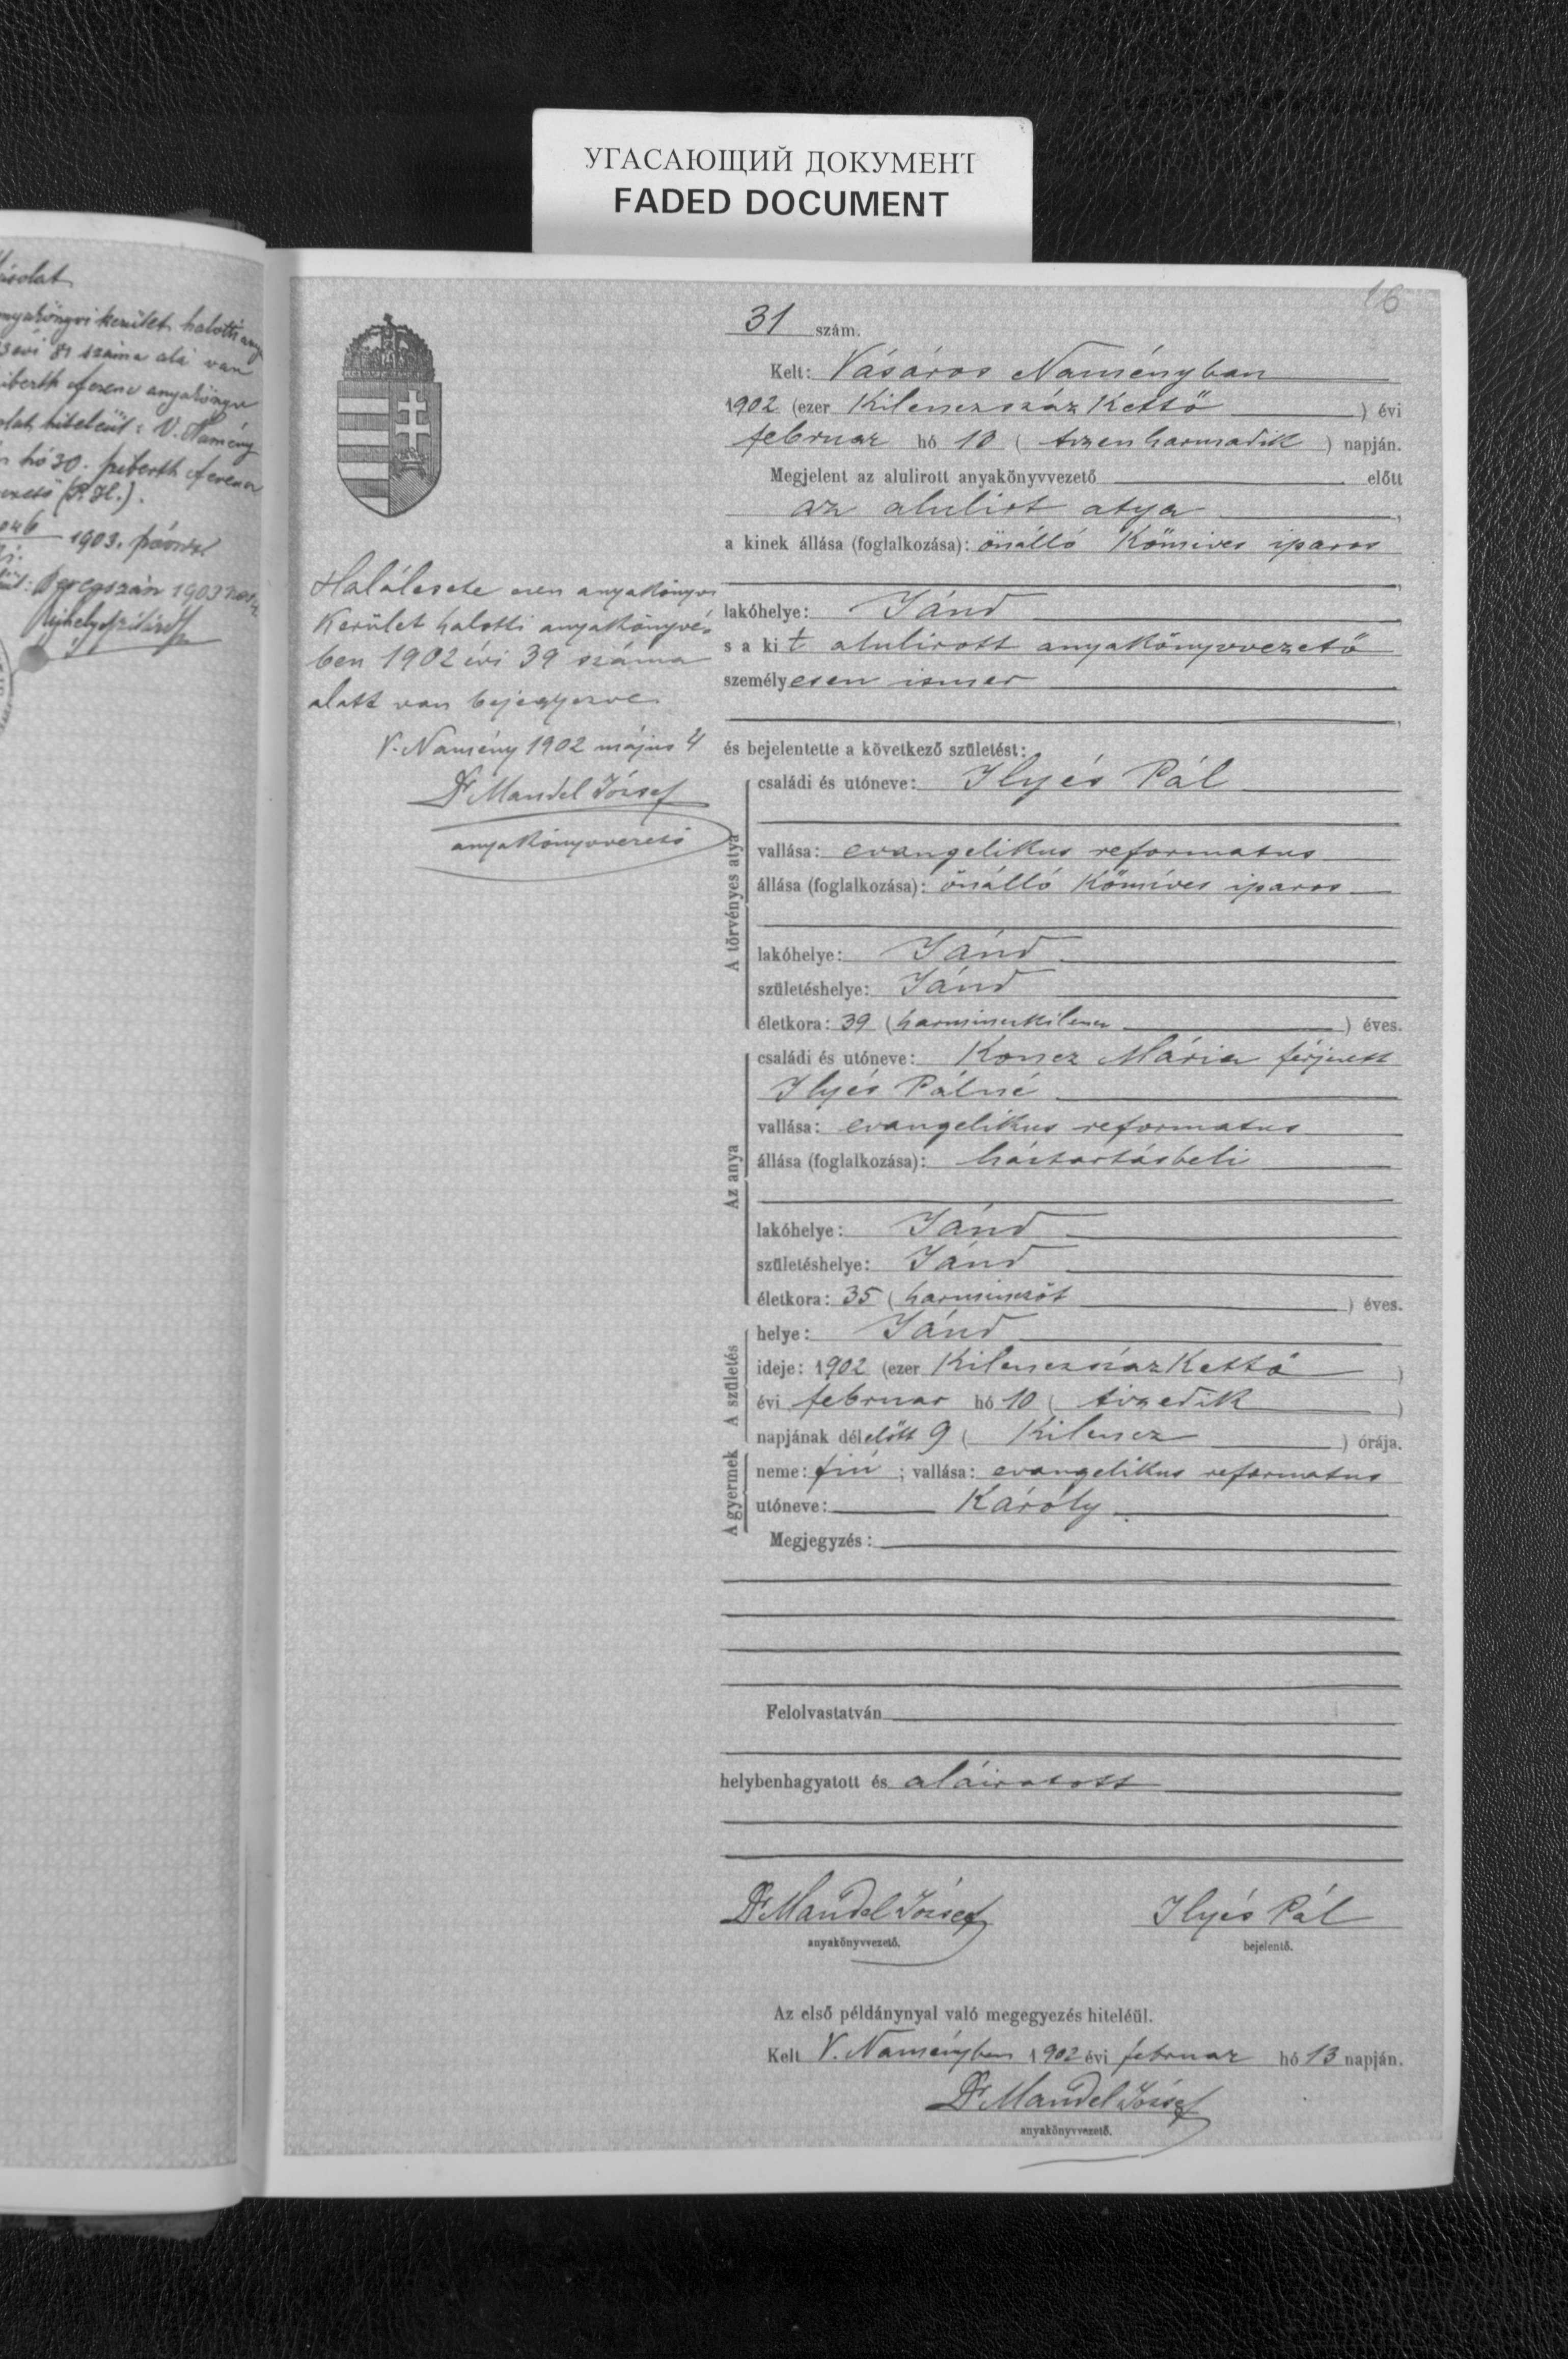 УГАСАЮЩИЙ ДОКУМЕНТ
FADED DOCUMENT
16
ásolat
anyakönyvi kerület halotti any
évi 81 száma alá van
Ferenc anyakönyv
hiteléül: V. Namény
hó 30. Ferenc
(P. H.).
1903.
1903
31 szám.
Kelt: Vásáros Naményban
1902 (ezer Kilenczszáz Kettő ) évi
februar hó 10 ( tizenharmadik ) napján.
Megjelent az alulirott anyakönyvvezető előtt
az alulirt atya ,
a kinek állása (foglalkozása): önálló Kőmives iparos
,
lakóhelye: Jánd
s a kit alulirott anyakönyvvezető
személyesen ismer
,
és bejelentette a következő születést:
Halálesete ezen anyakönyvi
Kerület halotti anyakönyvé-
ben 1902 évi 39 száma
alatt van bejegyezve
V. Namény 1902 május 4
Dr Mandel József
anyakönyvvezető
A törvényes atya
családi és utóneve: Ilyés Pál
vallása: evangelikus reformatus
állása (foglalkozása): önálló Kőmíves iparos
lakóhelye: Jánd
születéshelye: Jánd
életkora: 39 (harminczkilencz ) éves.
Az anya
családi és utóneve: Koncz Mária férjezett
Ilyés Pálné
vallása: evangelikus reformatus
állása (foglalkozása): háztartásbeli
lakóhelye: Jánd
születéshelye: Jánd
életkora: 35 (harminczöt ) éves.
A születés
helye: Jánd
ideje: 1902 (ezer Kilenczszáz Kettő )
évi februar hó 10 ( tizedik )
napjának délelőtt 9 ( Kilencz ) órája.
A gyermek
neme: fiú ; vallása: evangelikus reformatus
utóneve: Károly
Megjegyzés:
Felolvastatván
helybenhagyatott és aláiratott
Dr Mandel József Ilyés Pál
anyakönyvvezető. bejelentő.
Az első példánynyal való megegyezés hiteléül.
Kelt V. Naményban 1902 évi februar hó 13 napján.
Dr Mandel József
anyakönyvvezető.